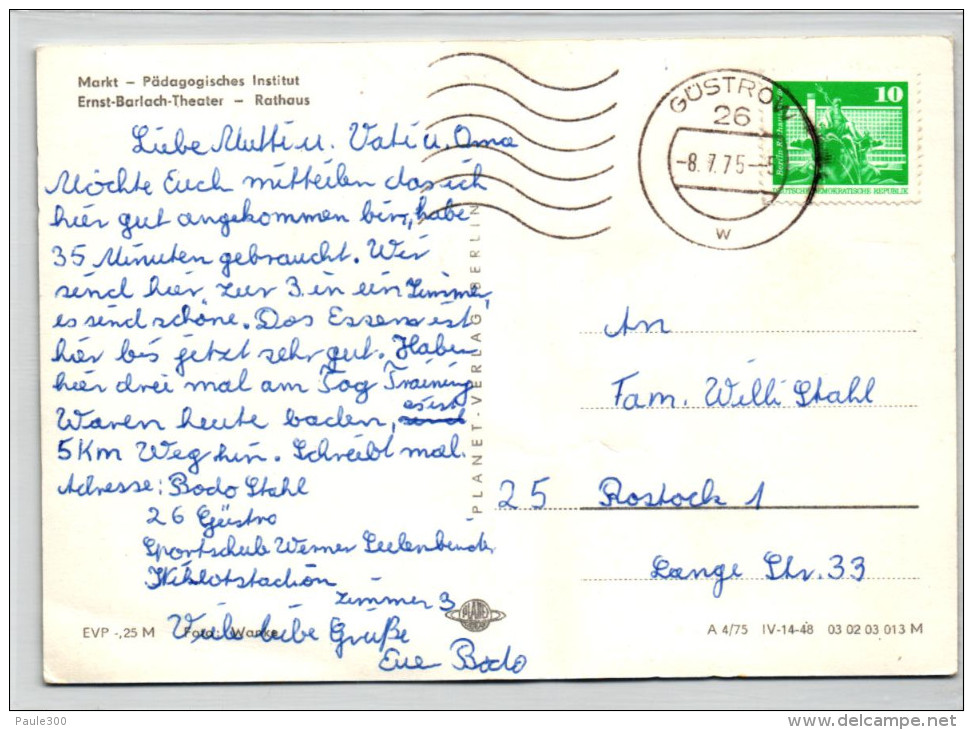 Markt – Pädagogisches Institut
Ernst-Barlach-Theater – Rathaus
Liebe Mutti u. Vati u. Oma
Möchte Euch mitteilen das ich
hier gut angekommen bin, habe
35 Minuten gebraucht. Wir
sind hier zur 3. in ein Zimmer,
es sind schöne. Das Essen ist
hier bis jetzt sehr gut. Haben
hier drei mal am Tag Training
Waren heute baden, es ist
5 Km Weg hin. Schreibt mal.
Adresse: Bodo Stahl
26 Güstro
Sportschule Werner Seelenbinder
Niklotstadion
Zimmer 3
Viele liebe Grüße
Eue Bodo
EVP -,25 M Foto: Wanke
PLANET-VERLAG BERLIN
PLANET
GÜSTROW
26
-8.7.75-5
w
10
Berlin-Rathausstr.
DEUTSCHE DEMOKRATISCHE REPUBLIK
An
Fam. Willi Stahl
25 Rostock 1
Lange Str. 33
A 4/75 IV-14-48 03 02 03 013 M
Paule300
www.delcampe.net